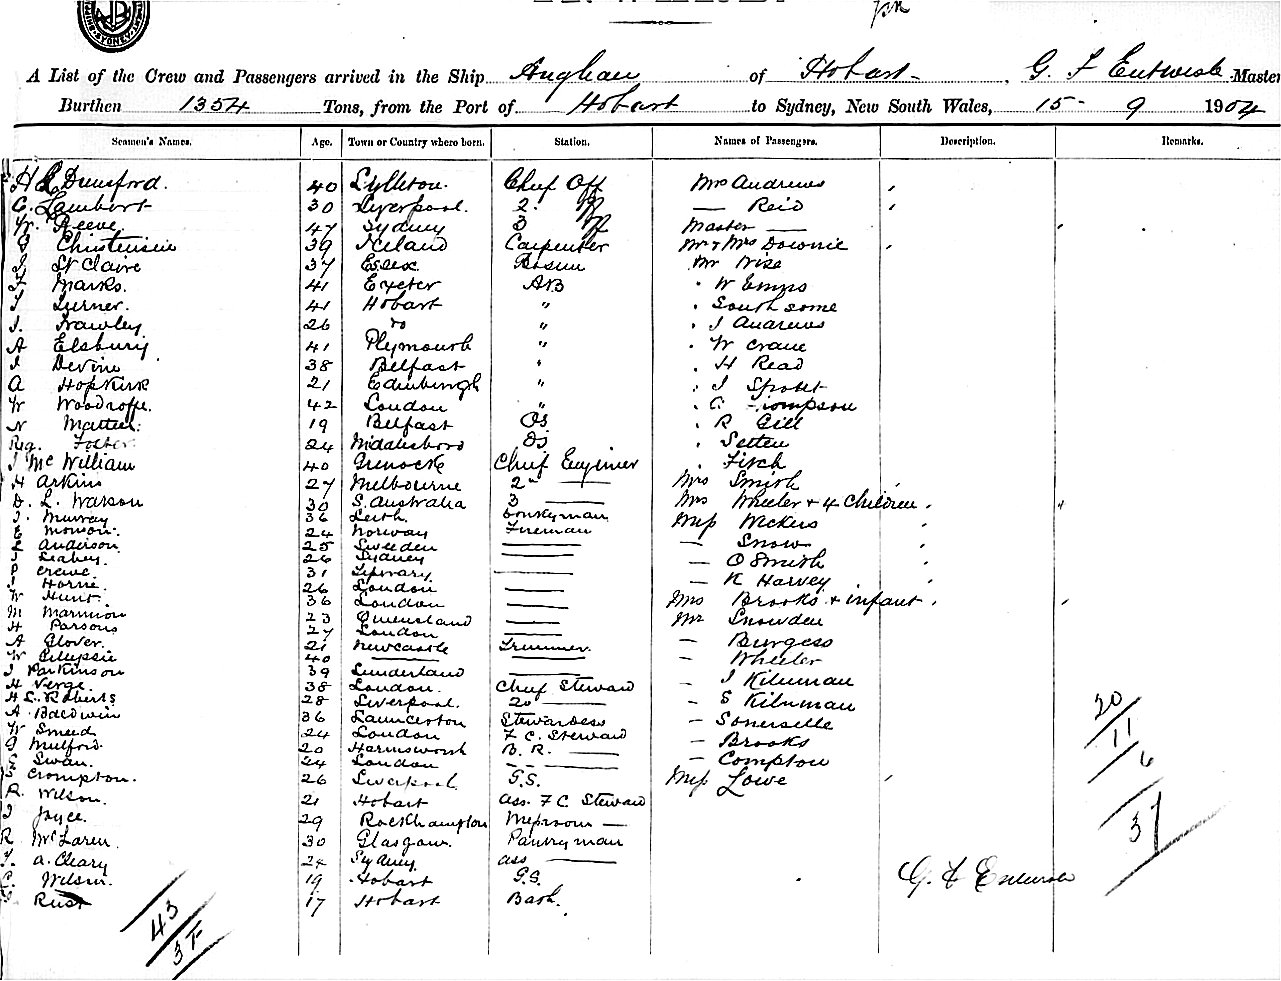 SYDNEY
A List of the Crew and Passengers arrived in the Ship Anglian of Hobart, G. F Entwisle Master
Burthen 1354 Tons, from the Port of Hobart to Sydney, New South Wales, 15- 9 1904
Seamen's Names. Age. Town or Country where born. Station. Names of Passengers. Description. Remarks.
Dunsford. 40 Lyttleton. Chief Off Mrs Andrews
C. Lambert 30 Liverpool. 2. Off — Reid
W. Reeve 47 Sydney 3 Off Master —
Christensen 39 Iceland Carpenter Mr & Mrs Downie
St Claire 37 Essex. Bosun Mr Wise
F Marks. 41 Exeter AB . W Emms
Turner. 41 Hobart " . South some
J. Frawley 26 Do " . J Andrews
A Elsbury 41 Plymouth " . W Crane
Devine 38 Belfast " . H Read
A Hopkirk 21 Edinburgh " . J
W Woodroffe. 42 London " . C. Thompson
N 19 Belfast OS . R Gill
Reg. Foster 24 Middlesboro OS
J McWilliam 40 Grenock Chief Engineer . Fitch
H Arkins 27 Melbourne 2" — Mrs Smith
D. L. Watson 30 S. Australia 3 — Mrs Wheeler & 4 Children.
J. Murray 36 Leith. Donkeyman Miss Wickers
E 24 Norway Fireman — Snow
Anderson 25 Sweeden — — O Smith
Leahey. 26 Sydney — — K Harvey
P Crewe 31 Tiperary —
J Horne 26 London — Mrs Brooks & infant.
W Hunt. 36 London — Mr Snowden
M Marmion 23 Queensland —
H Parsons 27 London — — Burgess
A Glover. 21 Newcastle Trimmer. — Wheeler
W Gillipsie 40 — —
J Parkinson 39 Sunderland — — J Kilnman
H Verge 38 London. Chief Steward
H L. Roberts 28 Liverpool. 20 — — S Kilnman
A. Baldwin 36 Launceston Stewardess — Somerville
W Smeed 24 London F C. Steward — Brooks
G Mulford 20 Harmsworth B. R. — — Compton
Swan. 24 London — Miss Lowe
Crompton. 26 Liverpool. G.S.
R. Wilson. 21 Hobart ass. F C. Steward
J Joyce. 29 Rockhampton Messroom —
R McLaren. 30 Glasgow. Pantryman
T. A. Cleary 24 Sydney. ass —
C. Wilson. 19 Hobart G.S.
Rust 17 Hobart
20
11
6
37
43
37